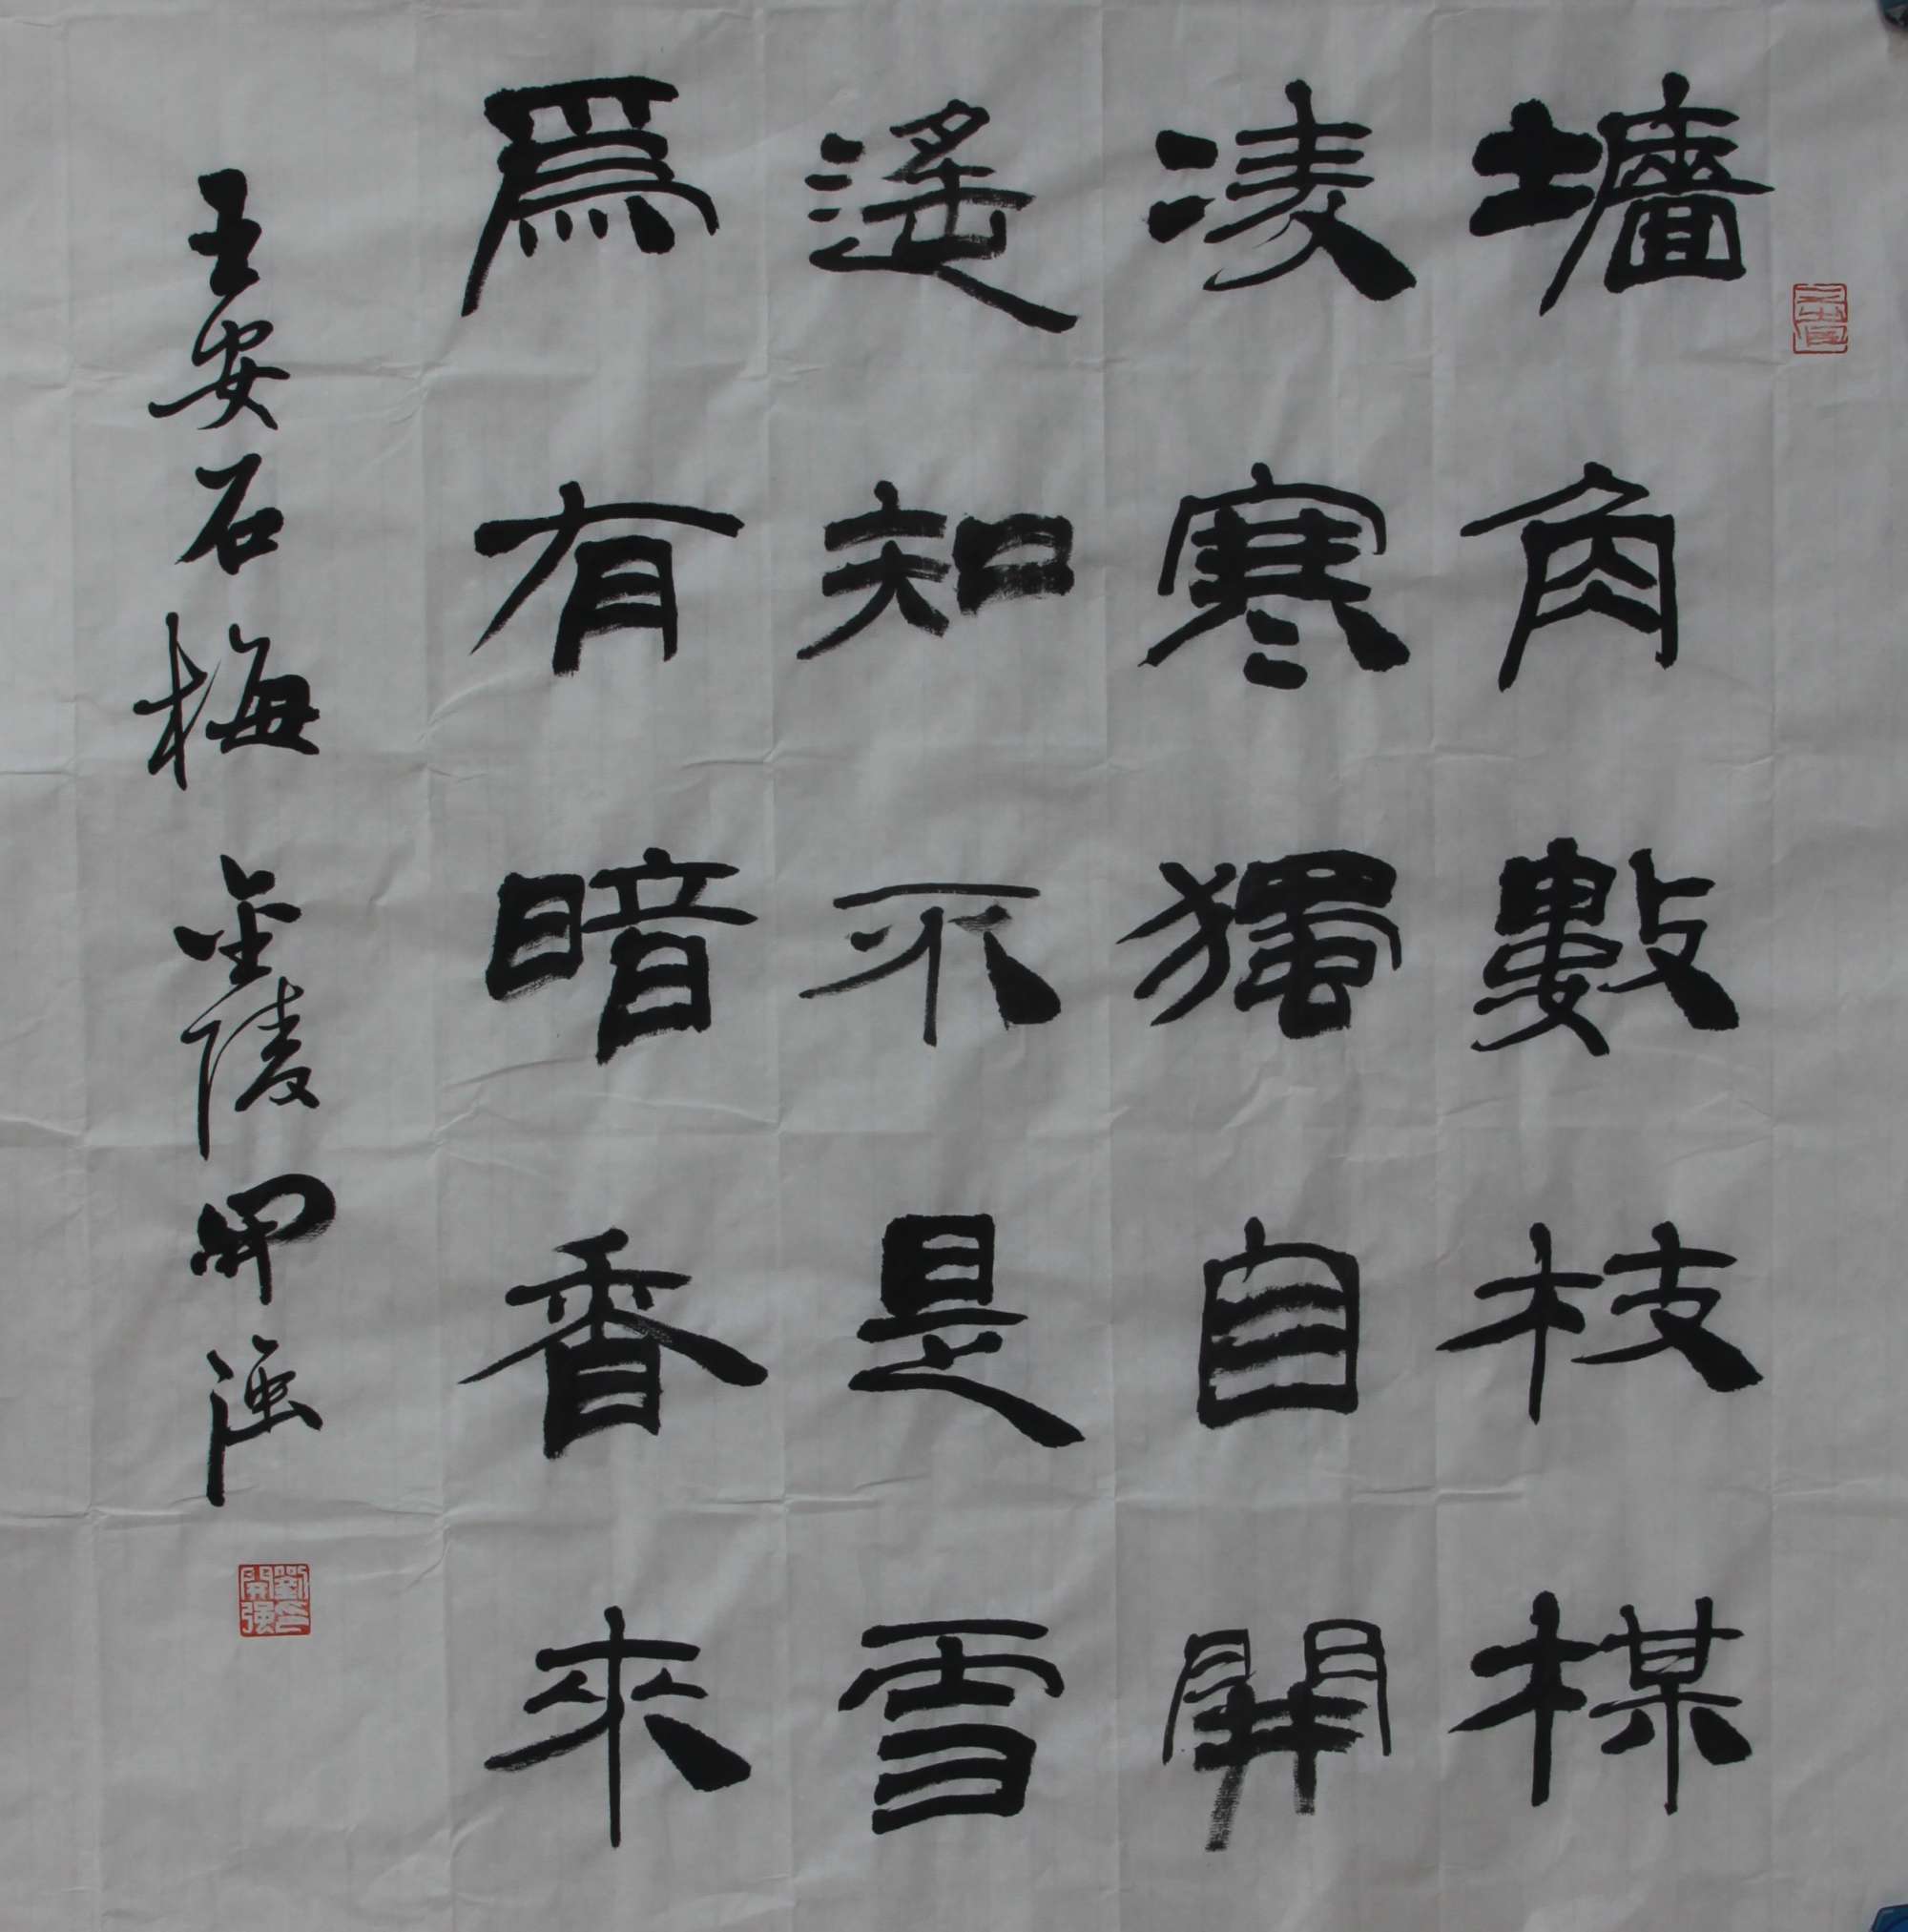 墻角數枝楳
凌寒獨自開
遥知不是雪
爲有暗香來
王安石梅 金陵開强
劉開强印